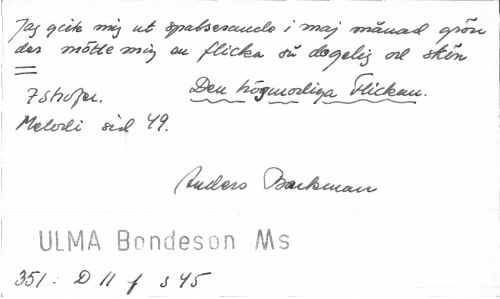 Jag gick mig ut spatserande i maj månad grön
der mötte mig en flicka så dogelig och skön
7 strofer. Den högmodiga Flickan.
Melodi sid 49.
Anders Backman
ULMA Bondeson Ms
351: D II f s 45